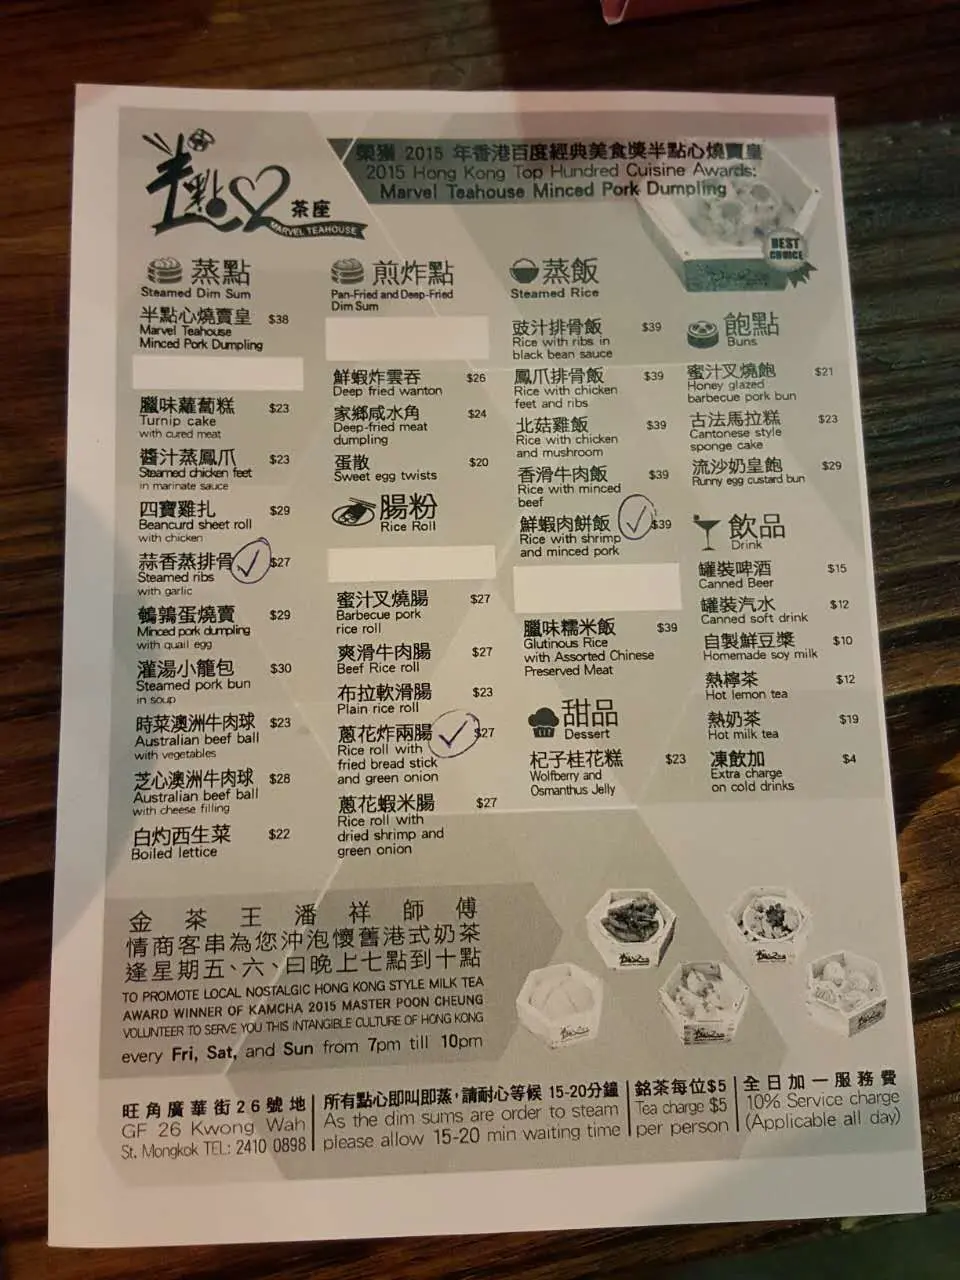 半點心 茶座
MARVEL TEAHOUSE
榮獲 2015 年香港百度經典美食獎半點心燒賣皇
2015 Hong Kong Top Hundred Cuisine Awards:
Marvel Teahouse Minced Pork Dumpling
BEST
CHOICE
蒸點
Steamed Dim Sum
半點心燒賣皇 $38
Marvel Teahouse
Minced Pork Dumpling
臘味蘿蔔糕 $23
Turnip cake
with cured meat
醬汁蒸鳳爪 $23
Steamed chicken feet
in marinate sauce
四寶雞扎 $29
Beancurd sheet roll
with chicken
蒜香蒸排骨 $27
Steamed ribs
with garlic
鵪鶉蛋燒賣 $29
Minced pork dumpling
with quail egg
灌湯小籠包 $30
Steamed pork bun
in soup
時菜澳洲牛肉球 $23
Australian beef ball
with vegetables
芝心澳洲牛肉球 $28
Australian beef ball
with cheese filling
白灼西生菜 $22
Boiled lettice
煎炸點
Pan-Fried and Deep-Fried
Dim Sum
鮮蝦炸雲吞 $26
Deep fried wanton
家鄉咸水角 $24
Deep-fried meat
dumpling
蛋散 $20
Sweet egg twists
腸粉
Rice Roll
蜜汁叉燒腸 $27
Barbecue pork
rice roll
爽滑牛肉腸 $27
Beef Rice roll
布拉軟滑腸 $23
Plain rice roll
蔥花炸兩腸 $27
Rice roll with
fried bread stick
and green onion
蔥花蝦米腸 $27
Rice roll with
dried shrimp and
green onion
蒸飯
Steamed Rice
豉汁排骨飯 $39
Rice with ribs in
black bean sauce
鳳爪排骨飯 $39
Rice with chicken
feet and ribs
北菇雞飯 $39
Rice with chicken
and mushroom
香滑牛肉飯 $39
Rice with minced
beef
鮮蝦肉餅飯 $39
Rice with shrimp
and minced pork
臘味糯米飯 $39
Glutinous Rice
with Assorted Chinese
Preserved Meat
甜品
Dessert
杞子桂花糕 $23
Wolfberry and
Osmanthus Jelly
飽點
Buns
蜜汁叉燒飽 $21
Honey glazed
barbecue pork bun
古法馬拉糕 $23
Cantonese style
sponge cake
流沙奶皇飽 $29
Runny egg custard bun
飲品
Drink
罐裝啤酒 $15
Canned Beer
罐裝汽水 $12
Canned soft drink
自製鮮豆漿 $10
Homemade soy milk
熱檸茶 $12
Hot lemon tea
熱奶茶 $19
Hot milk tea
凍飲加 $4
Extra charge
on cold drinks
金茶王潘祥師傅
情商客串為您沖泡懷舊港式奶茶
逢星期五、六、日晚上七點到十點
TO PROMOTE LOCAL NOSTALGIC HONG KONG STYLE MILK TEA
AWARD WINNER OF KAMCHA 2015 MASTER POON CHEUNG
VOLUNTEER TO SERVE YOU THIS INTANGIBLE CULTURE OF HONG KONG
every Fri, Sat, and Sun from 7pm till 10pm
旺角廣華街26號地
GF 26 Kwong Wah
St. Mongkok TEL: 2410 0898
所有點心即叫即蒸，請耐心等候 15-20分鐘
As the dim sums are order to steam
please allow 15-20 min waiting time
銘茶每位$5
Tea charge $5
per person
全日加一服務費
10% Service charge
(Applicable all day)